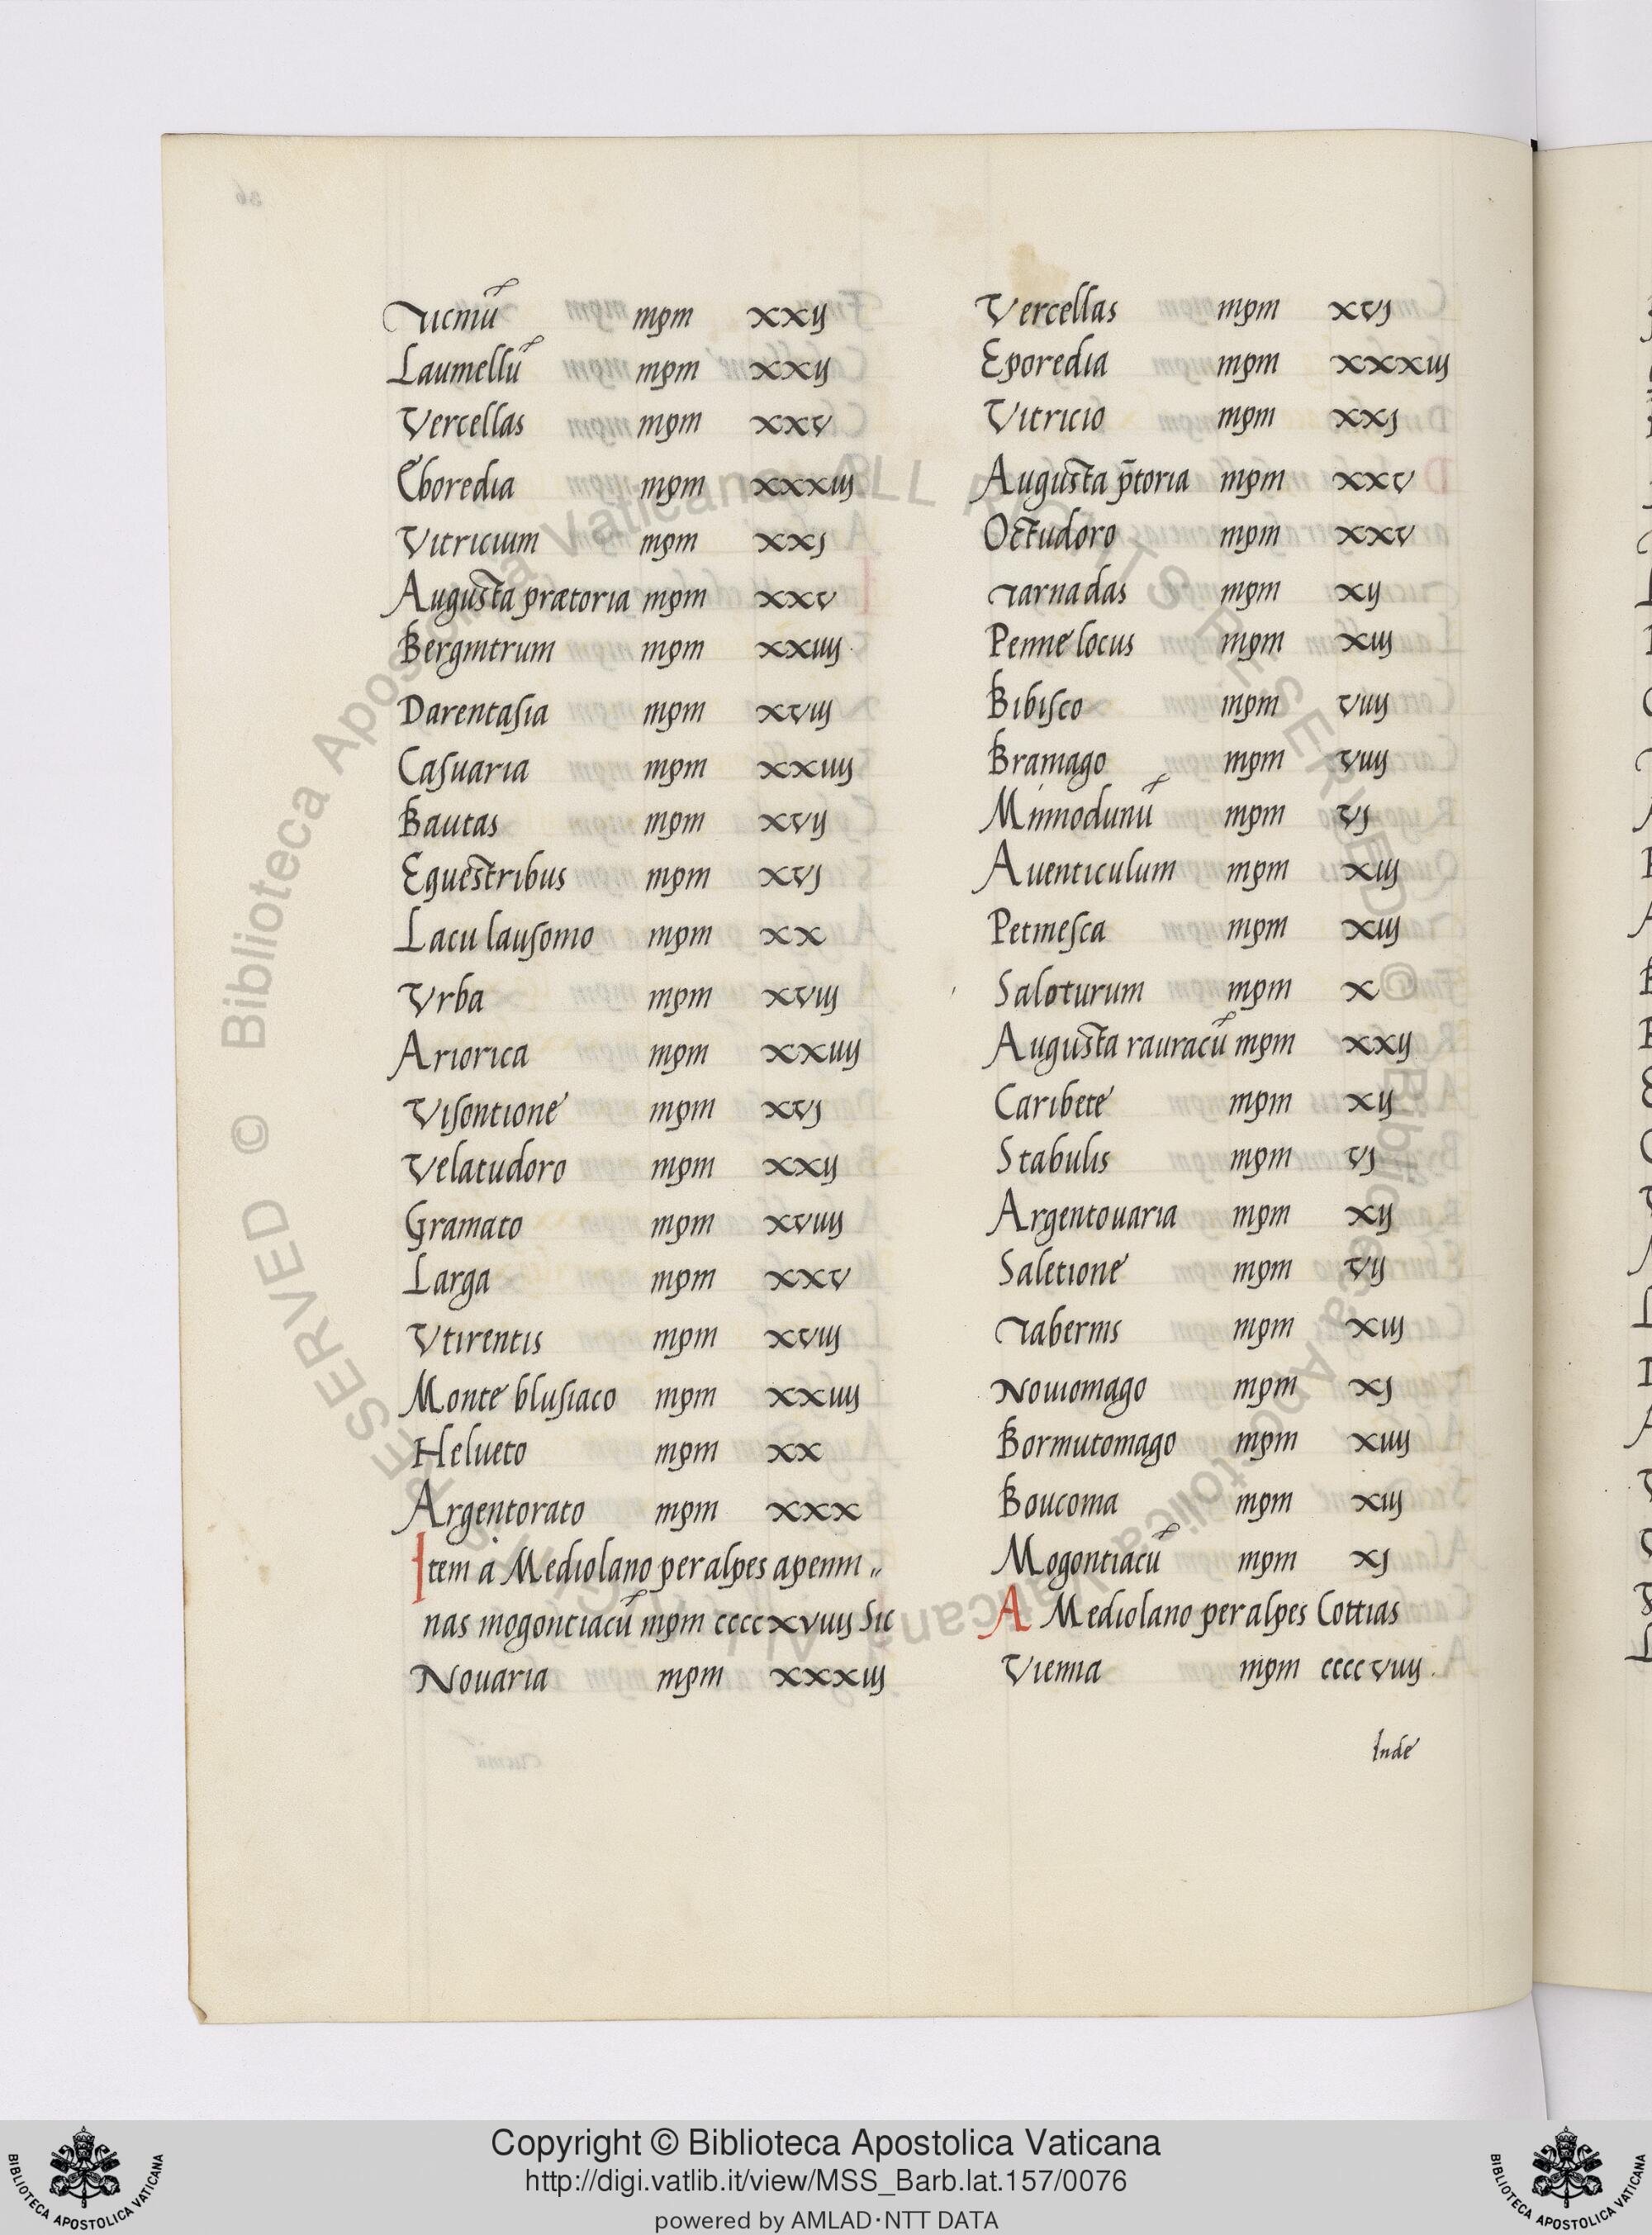 Ticinũ mpm xxij
Laumellũ mpm xxij
Vercellas mpm xxv
Eboredia mpm xxxiij
Vitricium mpm xxj
Augusta prætoria mpm xxv
Bergintrum mpm xxiiij
Darentasia mpm xviij
Casuaria mpm xxiiij
Bautas mpm xvij
Equestribus mpm xvj
Lacu lausonio mpm xx
Vrba mpm xviij
Ariorica mpm xxiiij
Visontione mpm xvj
Velatudoro mpm xxij
Gramato mpm xviiij
Larga mpm xxv
Vtirentis mpm xviij
Monte blusiaco mpm xxiiij
Helueto mpm xx
Argentorato mpm xxx
Item à Mediolano per alpes apenni„
nas mogontiacũ mpm ccccxviiij Sic
Nouaria mpm xxxiij
Vercellas mpm xvj
Eporedia mpm xxxiij
Vitricio mpm xxj
Augusta p̄toria mpm xxv
Octudoro mpm xxv
Tarnadas mpm xij
Penne locus mpm xiij
Bibisco mpm viiij
Bramago mpm viiij
Minnodunũ mpm vj
Auenticulum mpm xiij
Petinesca mpm xiij
Saloturum mpm x
Augusta rauracũ mpm xxij
Caribete mpm xij
Stabulis mpm vj
Argentouaria mpm xij
Saletione mpm vij
Tabernis mpm xiij
Nouiomago mpm xj
Bormitomago mpm xiiij
Bouconia mpm xiij
Mogontiacũ mpm xj
A Mediolano per alpes Cottias
Vienna mpm cccc viiij.
Inde
Copyright © Biblioteca Apostolica Vaticana
http://digi.vatlib.it/view/MSS_Barb.lat.157/0076
powered by AMLAD·NTT DATA
BIBLIOTECA APOSTOLICA VATICANA
BIBLIOTECA APOSTOLICA VATICANA